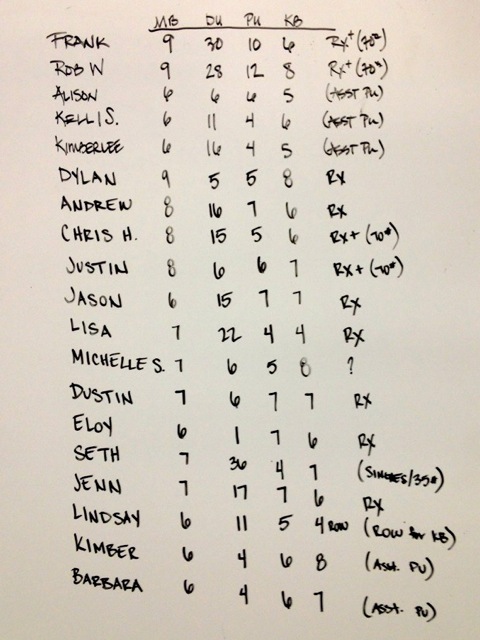 MB DU PU KB
FRANK 9 30 10 6 RX+ (70#)
ROB W 9 28 12 8 RX+ (70#)
ALISON 6 6 6 5 (ASST PU)
KELLI S. 6 11 4 6 (ASST PU)
KIMBERLEE 6 16 4 5 (ASST PU)
DYLAN 9 5 5 8 RX
ANDREW 8 16 7 6 RX
CHRIS H. 8 15 5 6 RX+ (70#)
JUSTIN 8 6 6 7 RX+ (70#)
JASON 6 15 7 7 RX
LISA 7 22 4 4 RX
MICHELLE S. 7 6 5 8 ?
DUSTIN 7 6 7 7 RX
ELOY 6 1 7 6 RX
SETH 7 36 4 7 (SINGLES/35#)
JENN 7 17 7 6 RX
LINDSAY 6 11 5 4 ROW (ROW for KB)
KIMBER 6 4 6 8 (Asst. PU)
BARBARA 6 4 6 7 (Asst. PU)